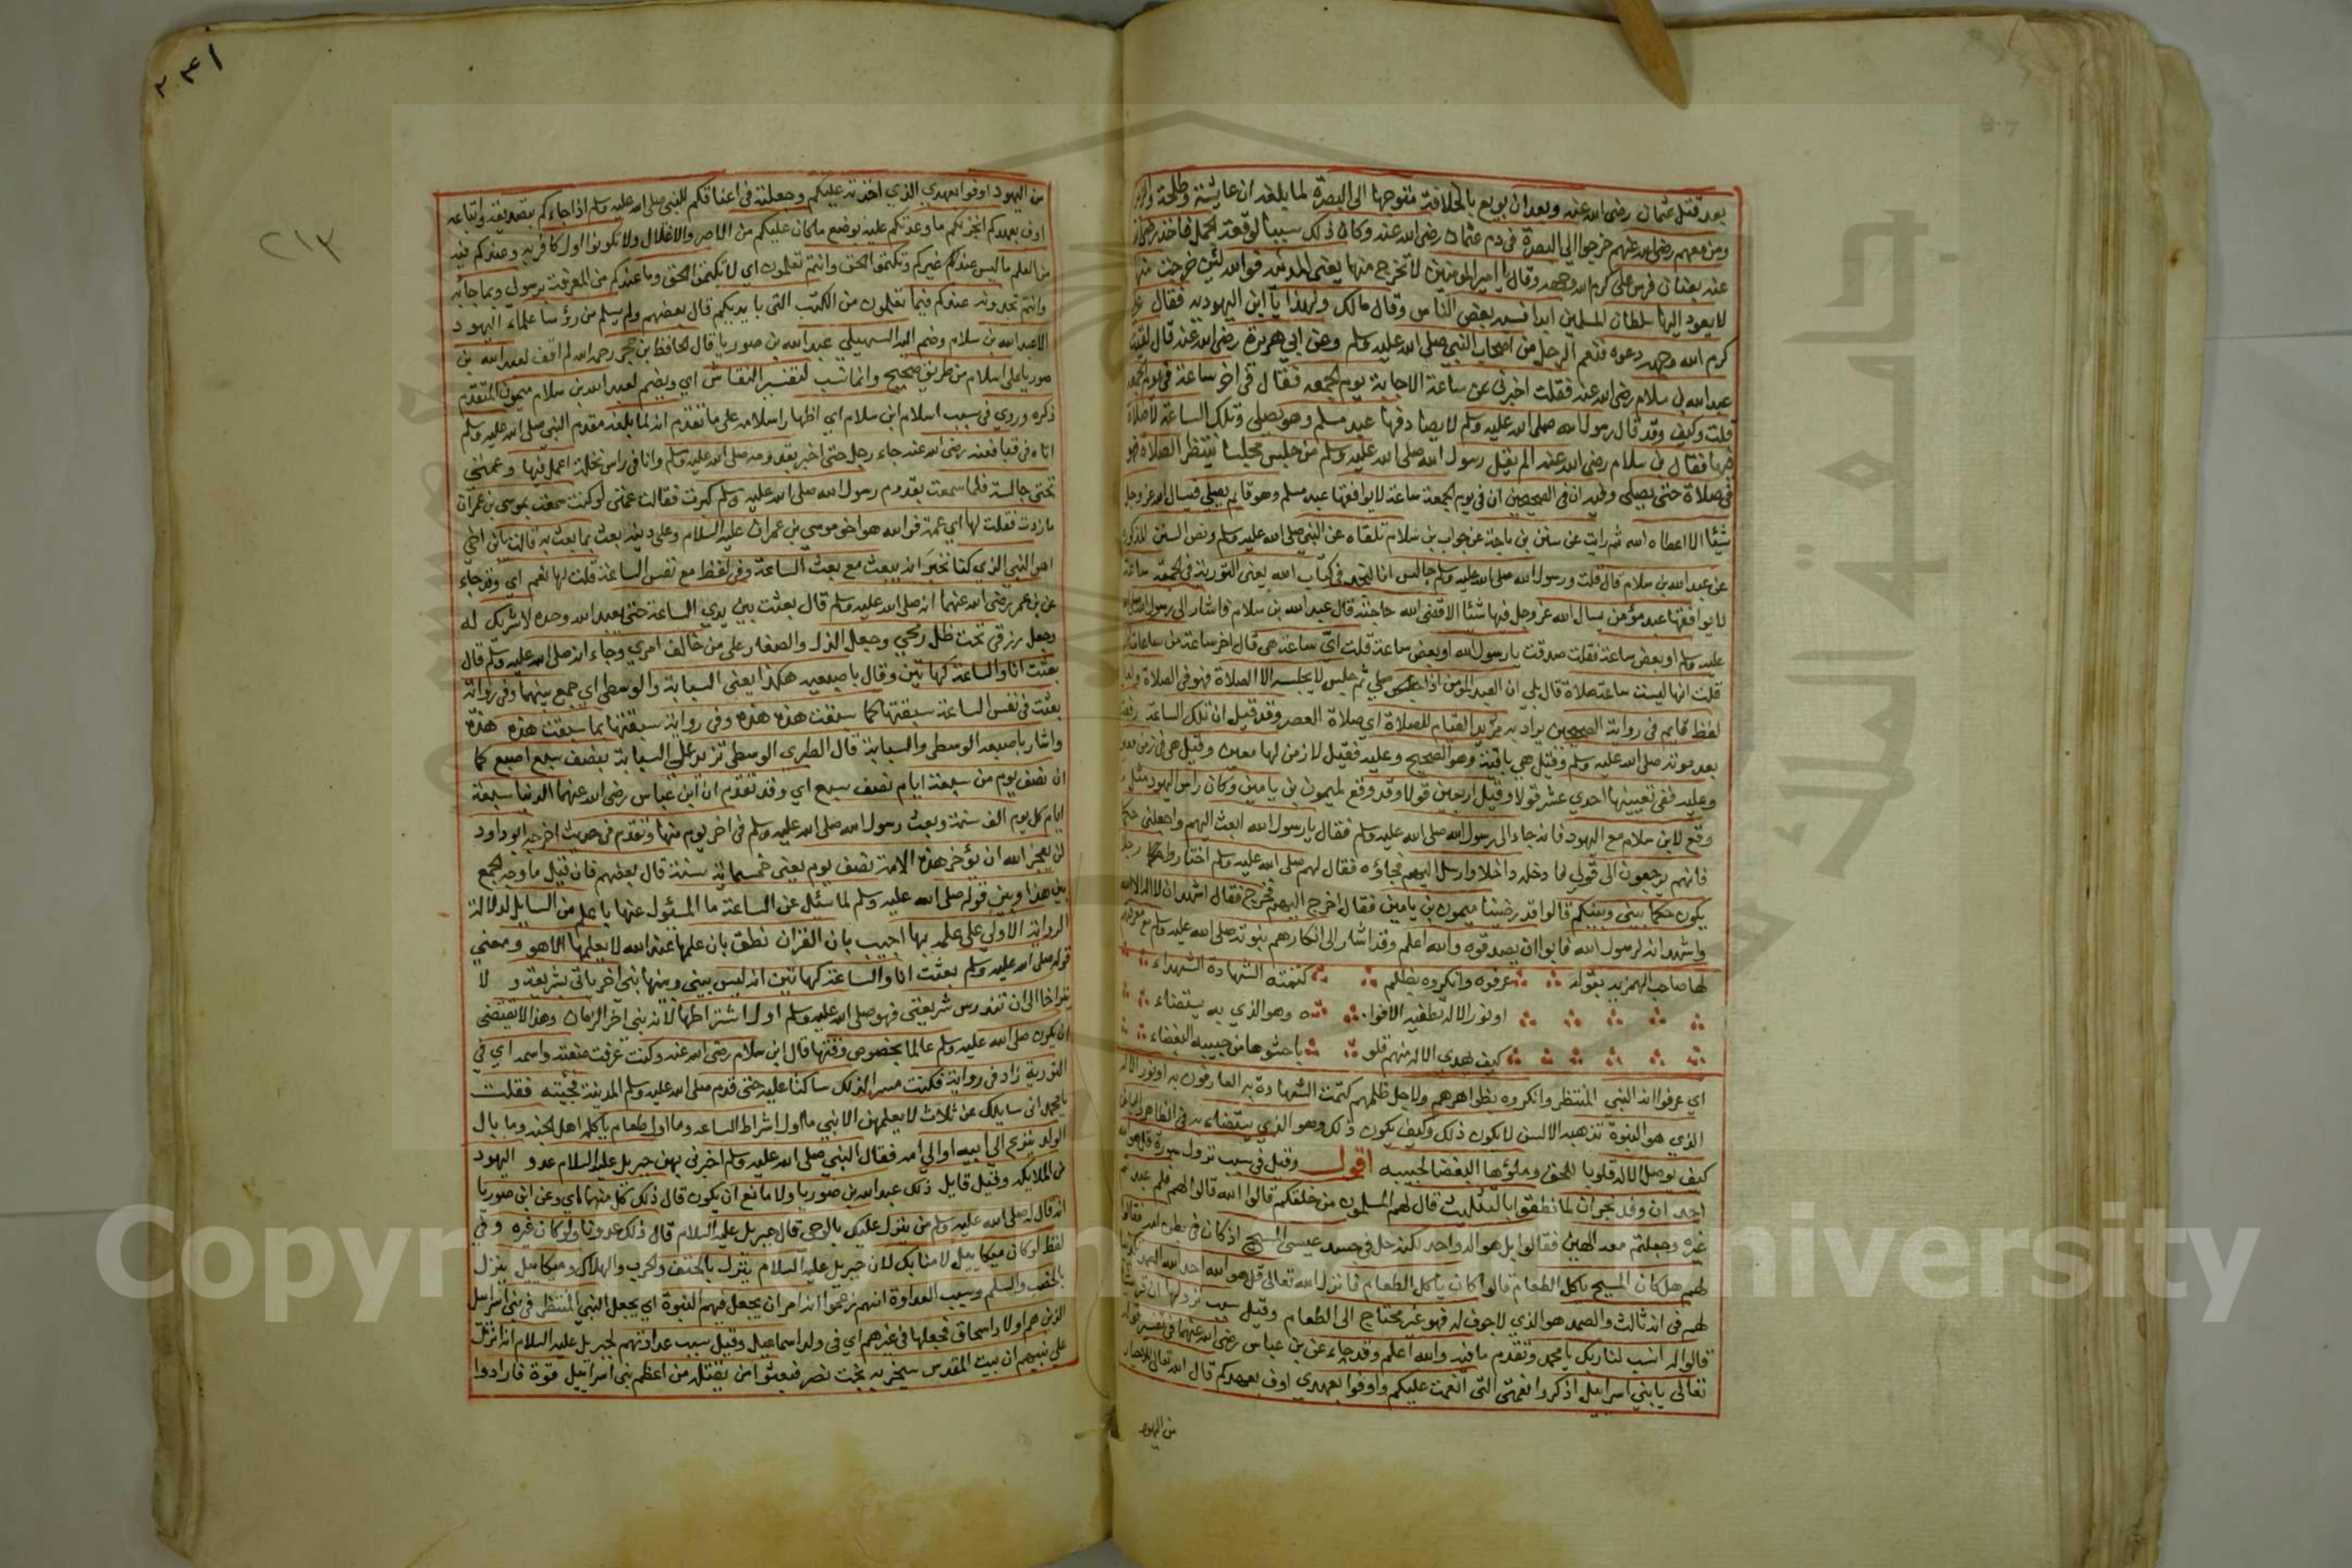 بعد قتل عثمان رضى الله عنه وبعد ان بويع بالخلافة متوجها الى البصرة لما بلغه ان عايشة وطلحة والزبير
ومن معهم رضى الله عنهم خرجوا الى البصرة فى دم عثمان رضى الله عنه وكان ذلك سببا لوقعة الجمل فاخذ
عنه بعنان فرس على كرم الله وجهه وقال يا امير المومنين لا تخرج منها يعنى المدينة فوالله لئن خرجت منها
لا يعود اليها سلطان المسلمين ابدا فسبه بعض الناس وقال مالك ولهذا يا ابن اليهودية فقال على
كرم الله وجهه دعوه فنعم الرجل من اصحاب النبى صلى الله عليه وسلم وعن ابى هريرة رضى الله عنه قال لقيت
عبد الله بن سلام رضى الله عنه فقلت اخبرنى عن ساعة الاجابة يوم الجمعه فقال فى اخر ساعة فى يوم الجمعه
قلت وكيف وقد قال رسول الله صلى الله عليه وسلم لا يصادفها عبد مسلم وهو يصلى وتلك الساعة لا صلاة
فيها فقال بن سلام رضى الله عنه الم يقل رسول الله صلى الله عليه وسلم من جلس مجلسا ينتظر الصلاة فهو
فى صلاة حتى يصلى وفيه ان فى الصحيحين ان فى يوم الجمعة ساعة لا يوافقها عبد مسلم وهو قايم يصلى فيسال الله عز وجل
شيئا الا اعطاه الله ثم رايت عن سنن بن ماجة عن جواب بن سلام تلقاه عن النبى صلى الله عليه وسلم ونص السنن المذكورة
عن عبد الله بن سلام قال قلت ورسول الله صلى الله عليه وسلم جالس انا لنجد فى كتاب الله يعنى التورية فى الجمعة ساعة
لا يوافقها عبد مؤمن يسال الله عز وجل فيها شيئا الا قضى الله حاجته قال عبد الله بن سلام فاشار الى رسول الله صلى الله
عليه وسلم او بعض ساعة فقلت صدقت يا رسول الله او بعض ساعة قلت اى ساعة هى قال اخر ساعة من ساعات
قلت انها ليست ساعة صلاة قال بلى ان العبد المومن اذا صلى ثم جلس لا يجلسه الا الصلاة فهو فى الصلاة
لفظ قايم فى رواية الصحيحين يراد به مريد القيام للصلاة اى صلاة العصر وقد قيل ان تلك الساعة رفعت
بعد موته صلى الله عليه وسلم وقيل هى باقية وهو الصحيح وعليه فقيل لا زمن لها معين وقيل هى فى زمن معين
وعليه ففى تعيينها احدى عشر قولا وقيل اربعين قولا وقد وقع لميمون بن يامين وكان راس اليهود مثل
وقع لابن سلام مع اليهود فانه جاء الى رسول الله صلى الله عليه وسلم فقال يا رسول الله ابعث اليهم واجعلنى حكما
فانهم يرجعون الى قولى فادخله داخلا وارسل اليهم فجاؤه فقال لهم صلى الله عليه وسلم اختاروا رجلا
يكون حكما بينى وبينكم قالوا قد رضينا ميمون بن يامين فقال اخرج اليهم فخرج فقال اشهد ان لا اله الا الله
واشهد انه لرسول الله فابوا ان يصدقوه والله اعلم وقد اشار الى انكارهم نبوته صلى الله عليه وسلم مع معرفتهم
لها صاحب الهمزيه بقوله عرفوه وانكروه بظلم كتمته الشهادة الشهداء
او نور الاله تطفيه الافواه وهو الذي به يستضاء
كيف يهدى الاله منهم قلوبا حشوها من حبيبه البغضاء
اى عرفوا انه النبى المنتظر وانكروه بظواهرهم ولاجل ظلمهم كتمت الشهادة به العارفون به او نور الاله
الذى هو النبوة تذهبه الالسن لا يكون ذلك وكيف يكون ذلك وهو الذي يستضاء به فى الظاهر والباطن
كيف يوصل الاله قلوبا للحق وملؤها البغضا لحبيبه اقول وقيل فى سبب نزول سورة قل هو الله
احد ان وفد نجران لما نطقوا بالتثليث قال لهم المسلمون من خلقكم قالوا الله قالوا لهم فلم عبدتم
غيره وجعلتم معه الهين فقالوا بل هو اله واحد لكنه حل فى جسد عيسى المسيح اذ كان فى بطن امه فقالوا
لهم هل كان المسيح ياكل الطعام قالوا كان ياكل الطعام فانزل الله تعالى قل هو الله احد الله الصمد
لهم فى انه ثالث والصمد هو الذي لا جوف له فهو غير محتاج الى الطعام وقيل سبب نزولها ان قريشا
قالوا له انسب لنا ربك يا محمد وتقدم ما فيه والله اعلم وقد جاء عن بن عباس رضى الله عنهما فى تفسير قوله
تعالى يا بنى اسراييل اذكروا نعمتى التى انعمت عليكم واوفوا بعهدى اوف بعهدكم قال الله تعالى للاحبار
من اليهود
٢٠٣١
٢١٣
من اليهود اوفوا بعهدى الذي اخذته عليكم وجعلته فى اعناقكم للنبى صلى الله عليه وسلم اذا جاءكم بتصديقه واتباعه
اوف بعهدكم انجز لكم ما وعدتكم عليه بوضع ما كان عليكم من الاصر والاغلال ولا تكونوا اول كافر به وعندكم فيه
من العلم ما ليس عند غيركم وتكتموا الحق وانتم تعلمون اى لا تكتموا الحق وما عندكم من المعرفة برسولى وبما جاء به
وانتم تجدونه عندكم فيما تعلمون من الكتب التى بايديكم قال بعضهم ولم يسلم من رؤسا علماء اليهود
الا عبد الله بن سلام وضم اليه السهيلى عبد الله بن صوريا قال الحافظ ابن حجر رحمه الله لم اقف لعبد الله بن
صوريا على اسلام من طريق صحيح وانما نسب لتفسير النقاش اى ويضم لعبد الله بن سلام ميمون المتقدم
ذكره وروى فى سبب اسلام ابن سلام اى اظهار اسلامه على ما تقدم انه لما بلغه مقدم النبى صلى الله عليه وسلم
اتاه فى قبا فعنه رضى الله عنه جاء رجل حتى اخبر بقدومه صلى الله عليه وسلم وانا فى راس نخلة اعمل فيها وعمتى
تحتى جالسة فلما سمعت بقدوم رسول الله صلى الله عليه وسلم كبرت فقالت عمتى لو كنت سمعت بموسى بن عمران
ما زدت فقلت لها اى عمة فوالله هو اخو موسى بن عمران عليه السلام وعلى دينه بعث بما بعث به قالت يا بن اخى
اهو النبى الذي كنا نخبر انه يبعث مع بعث الساعة وفى لفظ مع نفس الساعة قلت لها نعم اى وقد جاء
عن بن عمر رضى الله عنهما انه صلى الله عليه وسلم قال بعثت بين يدى الساعة حتى يعبد الله وحده لا شريك له
وجعل رزقى تحت ظل رمحى وجعل الذل والصغار على من خالف امرى وجاء انه صلى الله عليه وسلم قال
بعثت انا والساعة كهاتين وقال باصبعيه هكذا يعنى السبابة والوسطى اى جمع بينهما وفى رواية
بعثت فى نفس الساعة سبقتها كما سبقت هذه هذه وفى رواية سبقتها بما سبقت هذه هذه
واشار باصبعيه الوسطى والسبابة قال الطبرى الوسطى تزيد على السبابة بنصف سبع اصبع كما
ان نصف يوم من سبعة ايام نصف سبع اى وقد تقدم ان ابن عباس رضى الله عنهما الدنيا سبعة
ايام كل يوم الف سنة وبعث رسول الله صلى الله عليه وسلم فى اخر يوم منها وتقدم فى حديث اخرجه ابو داود
لن يعجز الله ان يؤخر هذه الامة نصف يوم يعنى خمسماية سنة قال بعضهم فان قيل ما وجه الجمع
بين هذا وبين قوله صلى الله عليه وسلم لما سئل عن الساعة ما المسئول عنها باعلم من السايل لدلالة
الرواية الاولى على علمه بها اجيب بان القران نطق بان علمها عند الله لا يعلمها الا هو ومعنى
قوله صلى الله عليه وسلم بعثت انا والساعة كهاتين انه ليس بينى وبينها نبى اخر ياتى بشريعة ولا
يتراخا الى ان تندرس شريعتى فهو صلى الله عليه وسلم اول اشتراطها لانه نبى آخر الزمان وهذا لا يقتضى
ان يكون صلى الله عليه وسلم عالما بخصوص وقتها قال ابن سلام رضى الله عنه وكنت عرفت صفته واسمه اى فى
التورية زاد فى رواية فكنت مسرا لذلك ساكتا عليه حتى قدم صلى الله عليه وسلم المدينة فجئته فقلت
يا محمد انى سايلك عن ثلاث لا يعلمهن الا نبى ما اول اشراط الساعه وما اول طعام ياكله اهل الجنه وما بال
الولد ينزع الى ابيه او الى امه فقال النبى صلى الله عليه وسلم اخبرنى بهن جبريل عليه السلام عدو اليهود
من الملايكه وقيل قايل ذلك عبد الله بن صوريا ولا مانع ان يكون قال ذلك كل منهما اى وعن ابن صوريا
انه قال له صلى الله عليه وسلم من ينزل عليك بالوحى قال جبريل عليه السلام قال ذلك عدونا ولو كان غيره وفى
لفظ لو كان ميكاييل لامنا بك لان جبريل عليه السلام ينزل بالخسف والحرب والهلاك وميكاييل ينزل
بالخصب والسلم وسبب العداوة انهم زعموا انه امر ان يجعل فيهم النبوة اى يجعل النبى المنتظر فى بنى اسراييل
الذين هم اولاد اسحاق فجعلها فى غيرهم اى فى ولد اسماعيل وقيل سبب عداوتهم لجبريل عليه السلام انه انزل
على نبيهم ان بيت المقدس سيخربه بخت نصر فبعثوا من يقتله من اعظم بنى اسراييل قوة فارادوا
Copyright © King Saud University
جامعة الملك سعود